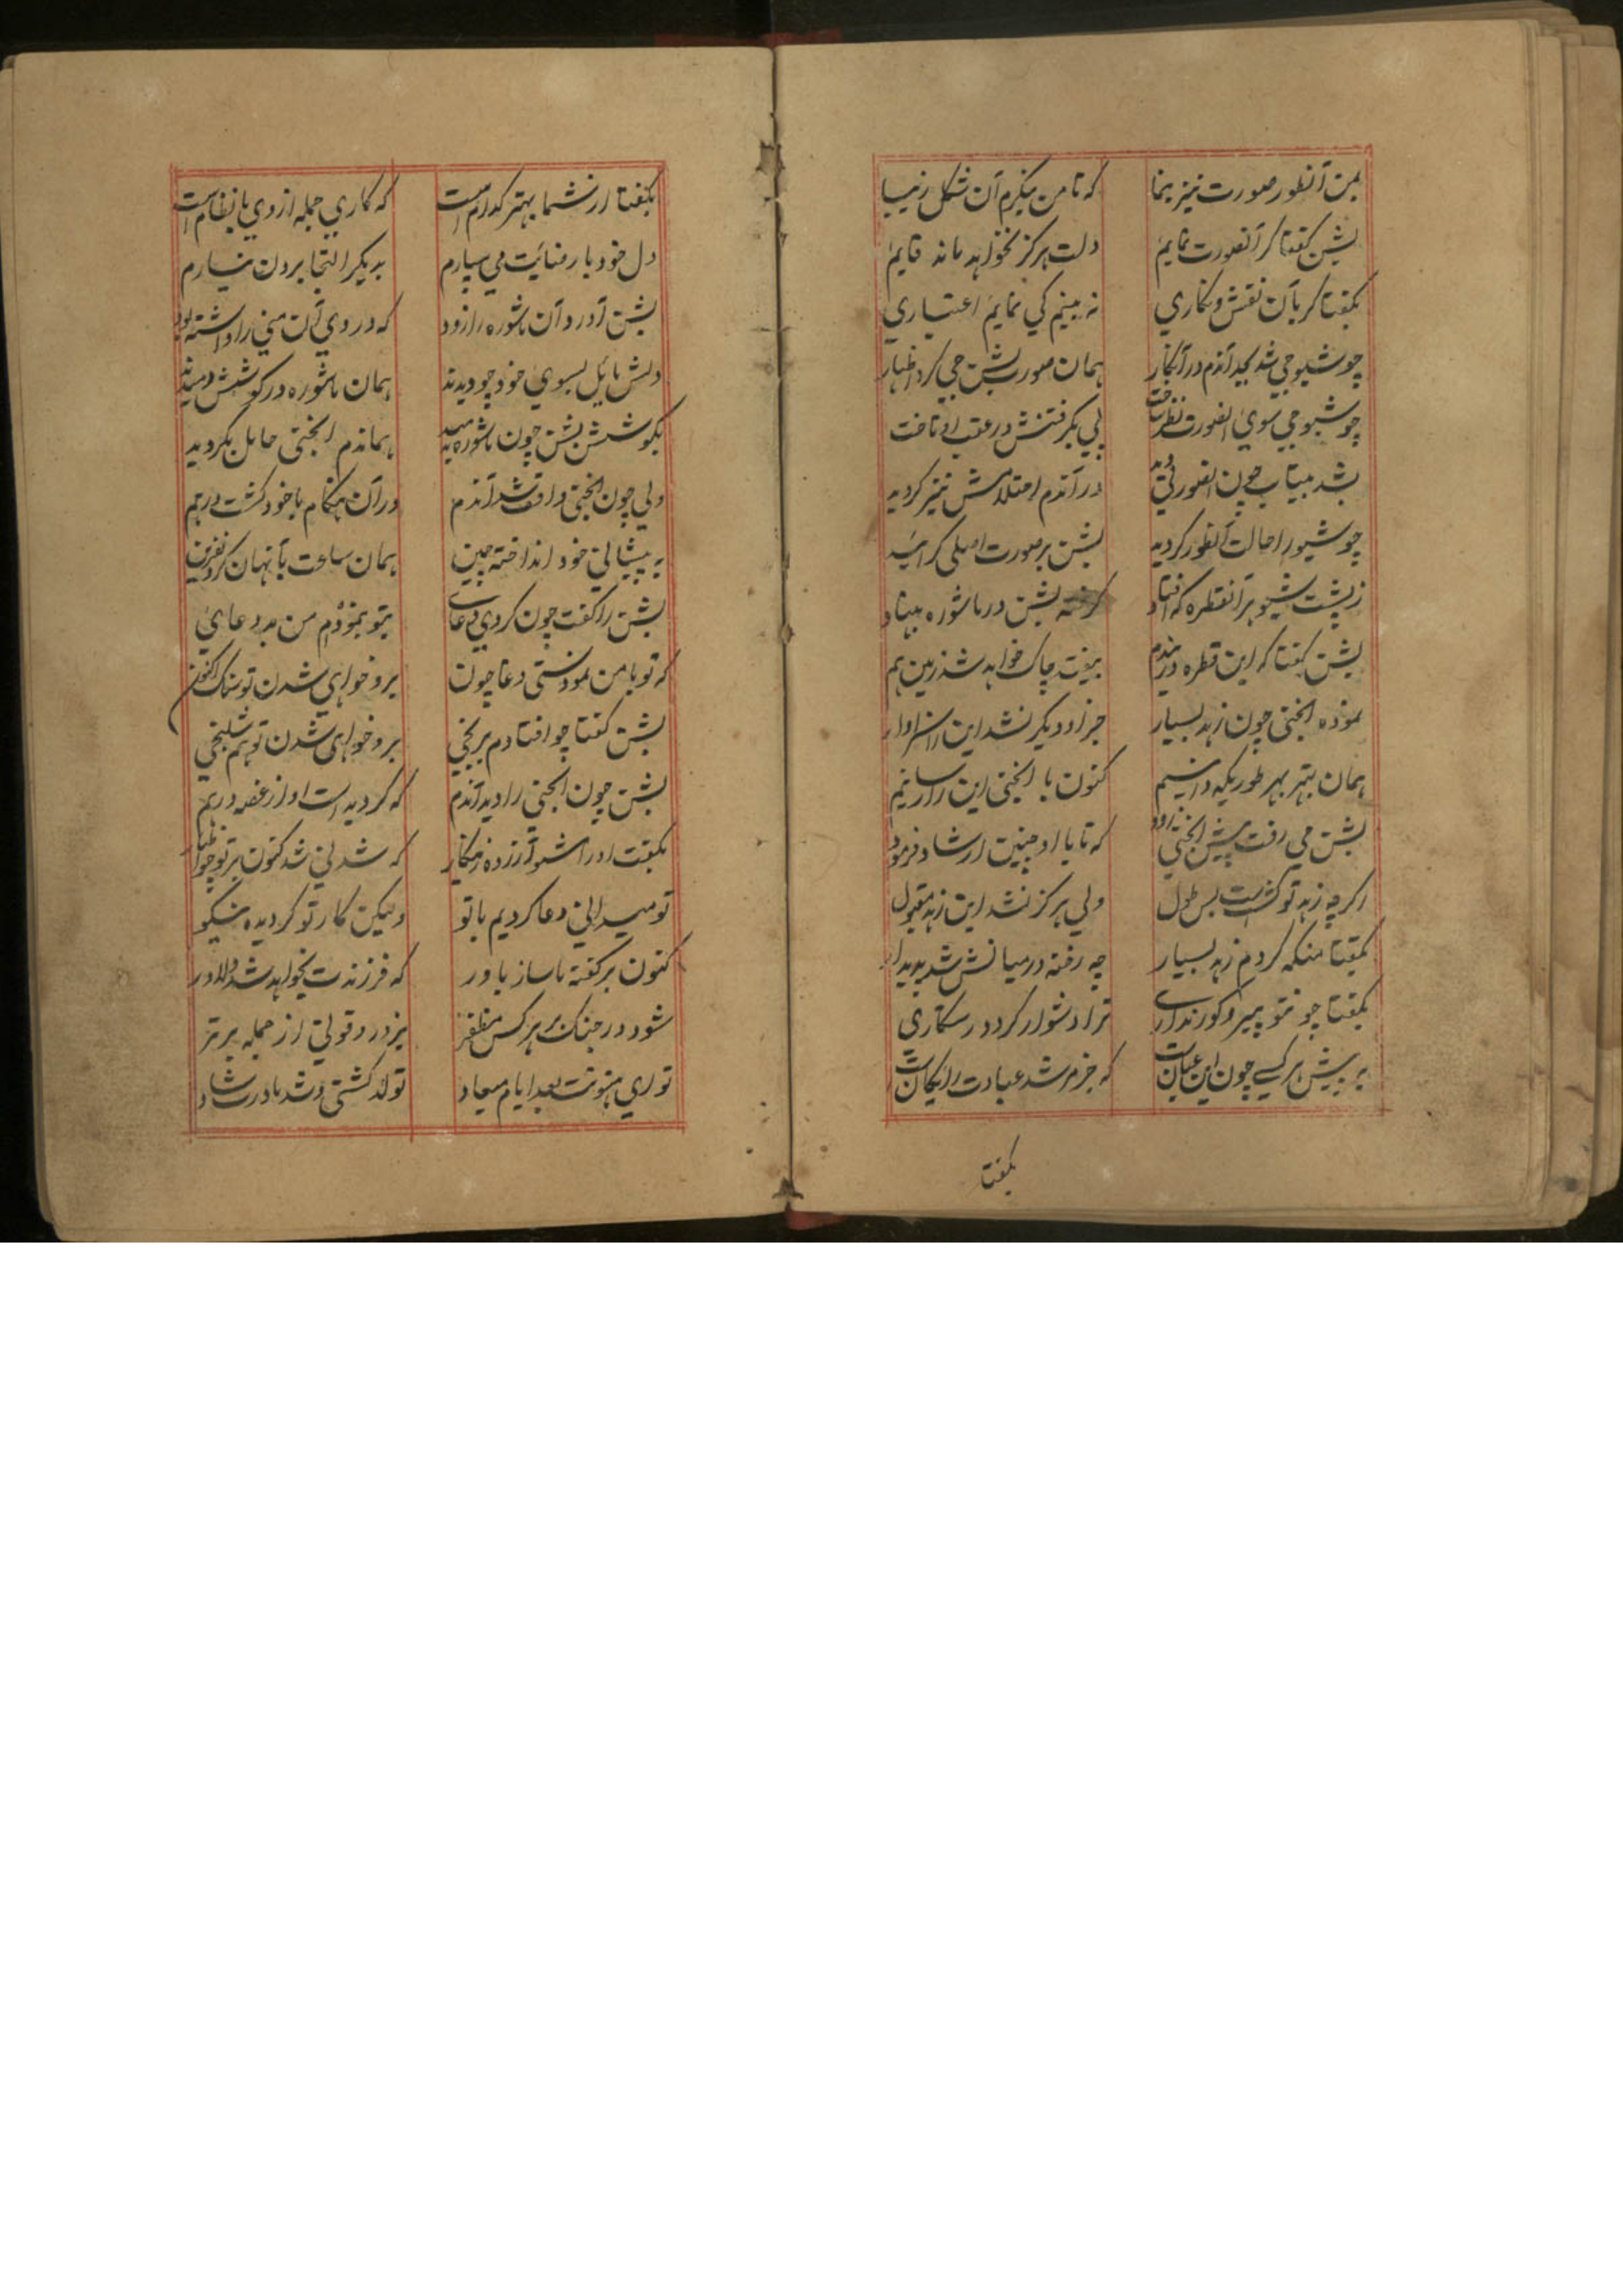 بمن آنطور صورت نیز بنما که تا من بنگرم آن شکل زیبا
بشن گفتا گر آنصورت نمایم دلت هرگز نخواهد ماند قایم
بگفتا گر بآن نقش و نگاری نه بینم کی نمایم اعتباری
چو شیوجی شد بجد آندم در آنکار همان صورت بشن جی کرد اظهار
چو شیوجی سوی انصورت نظر ساخت پی بگرفتنش در عقب او تاخت
بشد بیتاب چون انصورتی دید در آندم احتلامش نیز گردید
چو شیو را حالت آنطور گردید بشن بر صورت اصلی گرائید
ز پشت شیو هر آنقطره که افتاد گرفته بشن در ماشوره بنهاد
بشن گفتا که این قطره دریندم بیفتد چاک خواهد شد زمین هم
نموده انجنی چون زهد بسیار جز او دیگر نشد این را سزاوار
همان بهتر بهر طوریکه دانیم کنون با انجنی این را رسانیم
بشن می رفت پیش انجنی زود که تا با او چنین ارشاد فرمود
اگرچه زهد تو گشتست بس طول ولی هرگز نشد این زهد مقبول
بگفتا منکه کردم زهد بسیار چه رفته در میانش شد پدیدار
بگفتا چو نتو پیر و گورنداری ترا دشوار گردد رستگاری
به پیش هر کسے چون این عیانست که جز مرشد عبادت رایگانست
بگفتا
بگفتا از شما بهتر کدام است که کاری جمله از وی با نظام است
دل خود با رضائیت می سپارم بدیگر التجا بردن نیارم
بشن آورد آن ماشوره را زود که در وی آن منی را داشته بود
دلش مائل بسوی خود چو دیدند همان ماشوره در گوشش دمیدند
بگوشش بشن چون ماشوره دمید هماندم انجنی حامل بگردید
ولی چون انجنی واقف شد آندم در آن هنگام با خود گشت درهم
به پیشانی خود انداخته چین همان ساعت بآنهان کرد نفرین
بشن را گفت چون کردی دغائے بتو بنمودم من بد دعایی
که تو با من نمودستی دغا چون برو خواهی شدن تو سنگ اکنون
بشن گفتا چو افتادم برنجی برو خواهی شدن تو هم شلنجی
بشن چون انجنی را دید آندم که گردیده است او از غصه درهم
بگفت او را مشو آزرده زینکار که شدنی شد کنون بر تو چو اظهار
تو میدانی دعا کردیم با تو ولیکن کار تو گردیده نیکو
کنون بر گفته ما ساز باور که فرزندت بخواهد شد دلاور
شود در جنگ بر هر کس مظفر بزور و قوتی از جمله برتر
تو ری هنونت بعد ایام میعاد تولد گشتی و شد مادرت شاد